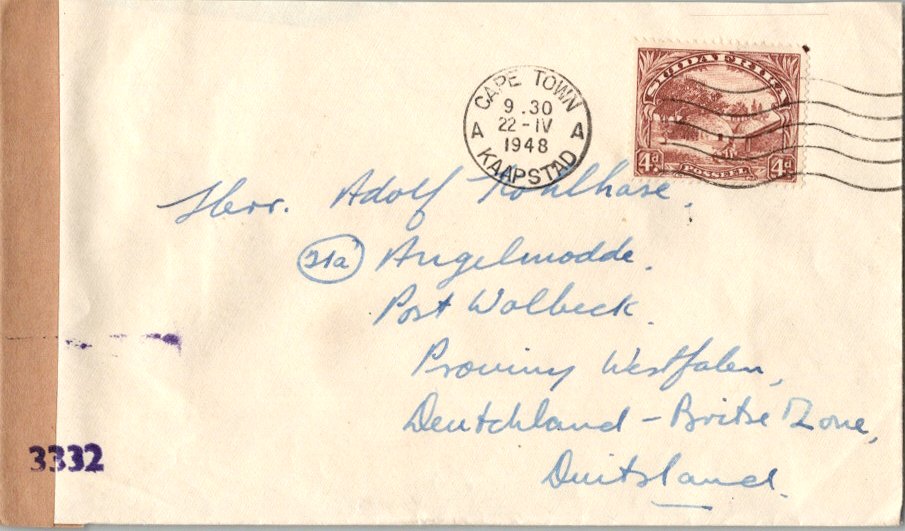 CAPE TOWN
9.30
22-IV
1948
A A
KAAPSTAD
SUIDAFRIKA
4d 4d
POSSEEL
Herr. Adolf Kohlhase.
21a Angelmodde.
Post Wolbeck.
Provinz Westfalen,
Deutchland - Britse Zone,
Duitsland.
3332